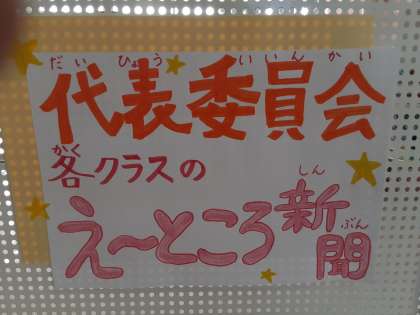 だいひょういいんかい
代表委員会
かく
各クラスの
え～ところ
しん ぶん
新聞